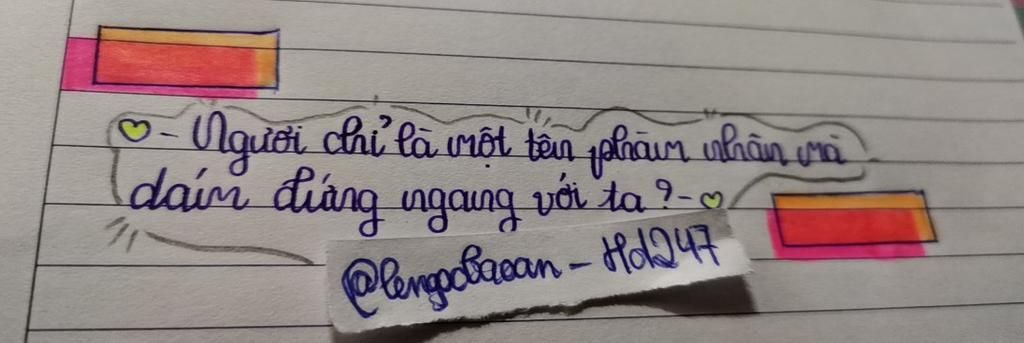 - Ngươi chỉ là một tên phàm nhân mà
dám đứng ngang với ta? -
@lengocbaoan - Hd247